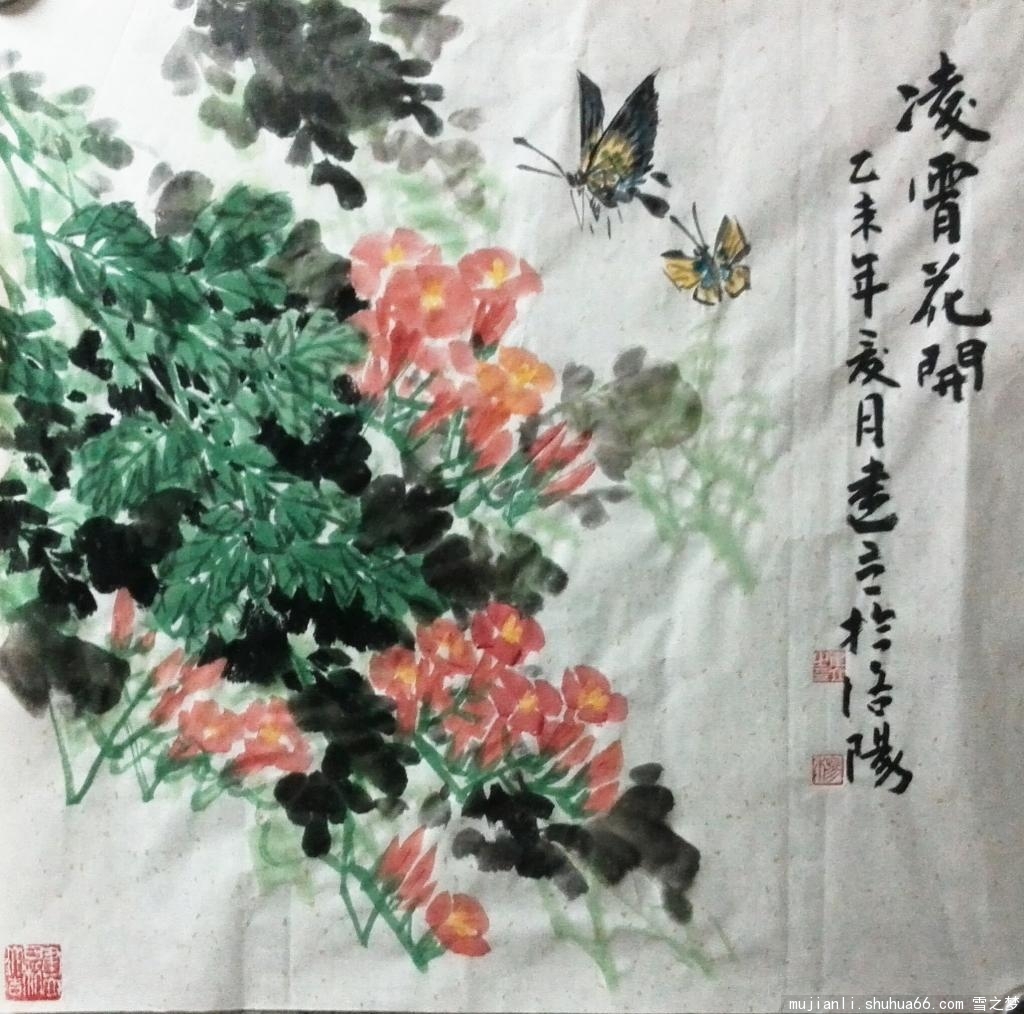 凌霄花開
乙未年夏月建立於洛陽
mujianli.shuhua66.com 雪之梦